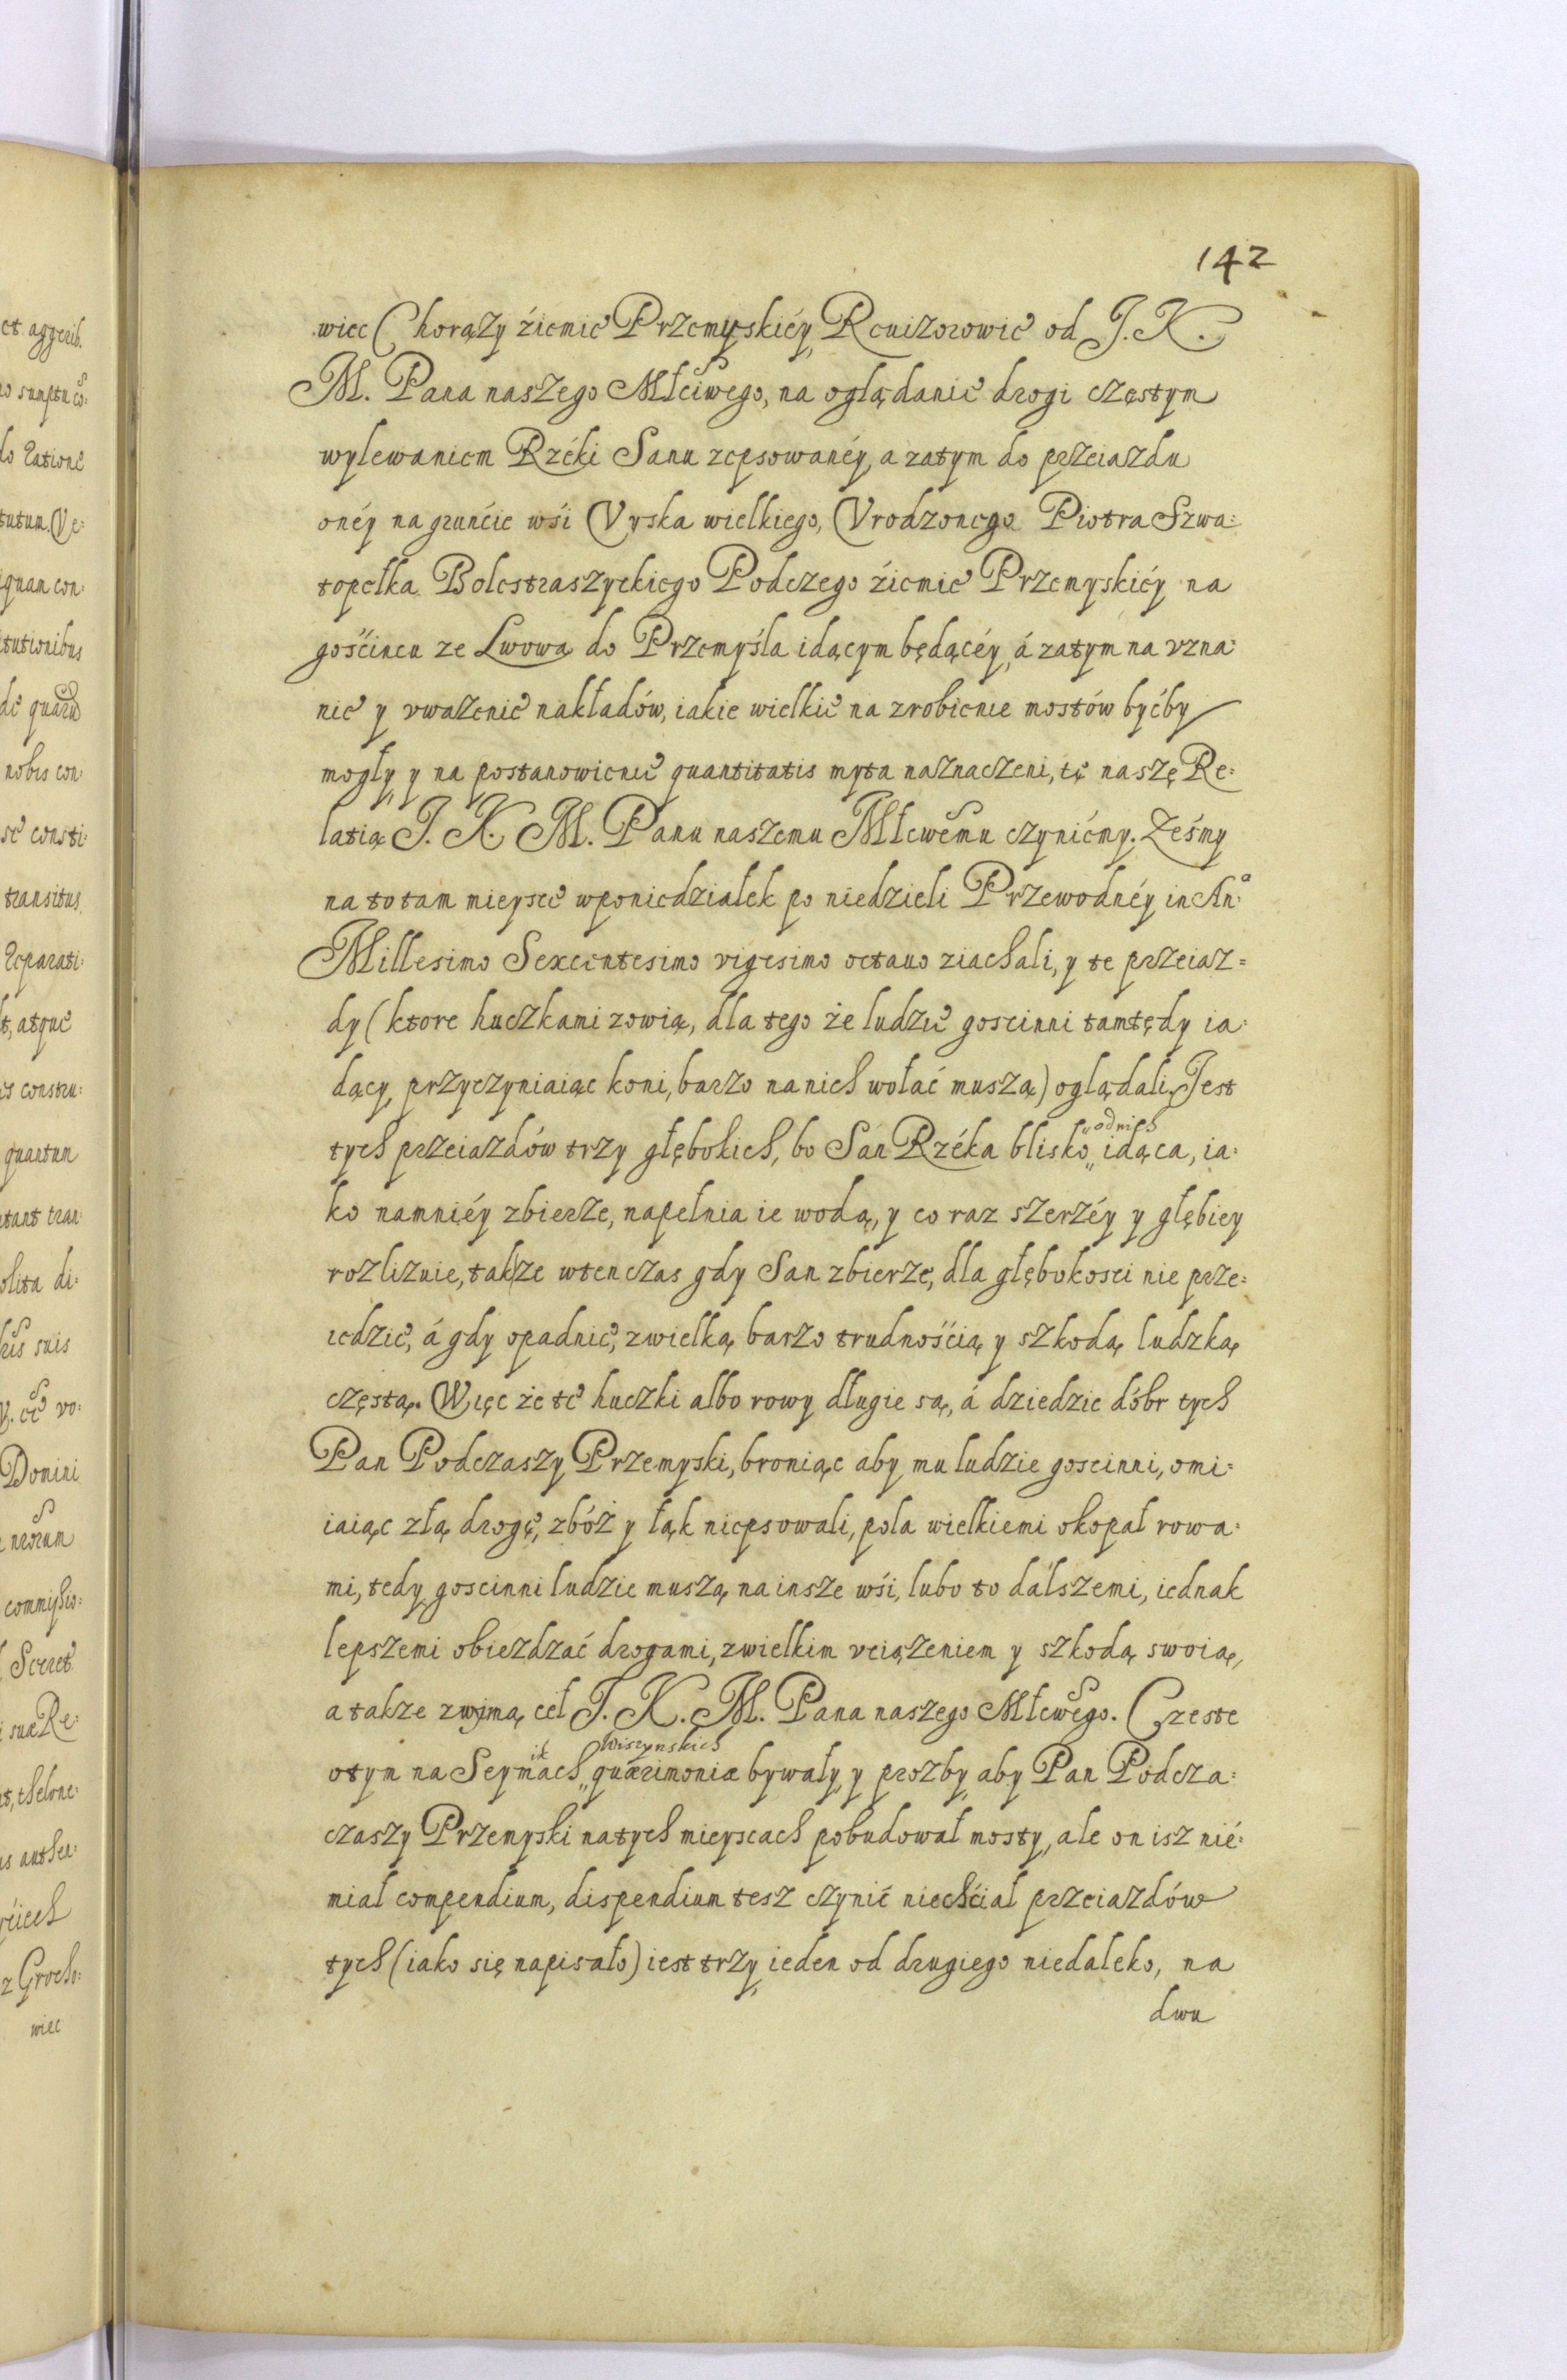 et aggerib.
no sumptu co:
do ratione
tutum. Ve:
quam con:
titutionibus
de quarū
nobis con:
se consti:
transitus
reparati:
t, atque
is constru:
quantum
tant tran:
olita di:
suis
vo:
Domini
nrorum
commissio:
Secret
suæ Re:
t, thelone:
us authen:
z Grocho:
wiec
142
wiec Chorąży źiemie Przemyskiéy, Reuizorowie od J. K.
M. Pana naszego Młciwego, na oglądanie drogi częstym
wylewaniem Rzéki Sanu zepsowanéy, a zatym do przeiazdu
onéy na grunćie wśi Vyska wielkiego, Vrodzonego Piotra Szwa:
topełka Bolestraszyckiego Podczego źiemie Przemyskiéy na
gośćincu ze Lwowa do Przemyśla idącym będącéy, á zatym na vzna:
nie y vważenie nakładów, iakie wielkie na zrobienie mostów byćby
mogły, y na postanowienie quantitatis myta naznaczeni, tę naszę Re:
latią J. K. M. Panu naszemu Młcwemu czyniémy. Żeśmy
na to tam mieysce wponiedziałek po niedzieli Przewodnéy in Anº
Millesimo Sexcentesimo vigesimo octauo ziachali, y te przeiaz=
dy (ktore huczkami zowią, dla tego że ludzie goscinni tamtędy ia:
dący, przyczyniaiąc koni, barzo na nich wołać muszą) oglądali. Jest
tych przeiazdów trzy głębokich, bo San Rzéka blisko „od nich idąca, ia:
ko namniéy zbierze, napełnia ie wodą, y co raz szerzéy y głębiey
rozlizuie, także wtenczas gdy San zbierze, dla głębokosci nie prze=
iedzie, á gdy opadnie, zwielką barzo trudnośćią y szkodą ludzką
częstą. Więc że te huczki albo rowy długie są, á dziedzic dóbr tych
Pan Podczaszy Przemyski, broniąc aby mu ludzie goscinni, omi:
iaiąc złą drogę, zbóż y łąk niepsowali, pola wielkiemi okopał rowa:
mi, tedy goscinni ludzie muszą na insze wśi, lubo to dálszemi, iednak
lepszemi obiezdzać drogami, zwielkim vciążeniem y szkodą swoią,
a także zwimą ceł J. K. M. Pana naszego Młcwego. Częste
otym na Seymikach „Wiszynskich quærimoniæ bywały, y prozby, aby Pan Podcza:
czaszy Przemyski natych mieyscach pobudował mosty, ale on isz nié:
miał compendium, dispendium tesz czynić niechćiał przeiazdów
tych (iako się napisało) iest trzy, ieden od drugiego niedaleko, na
dwu